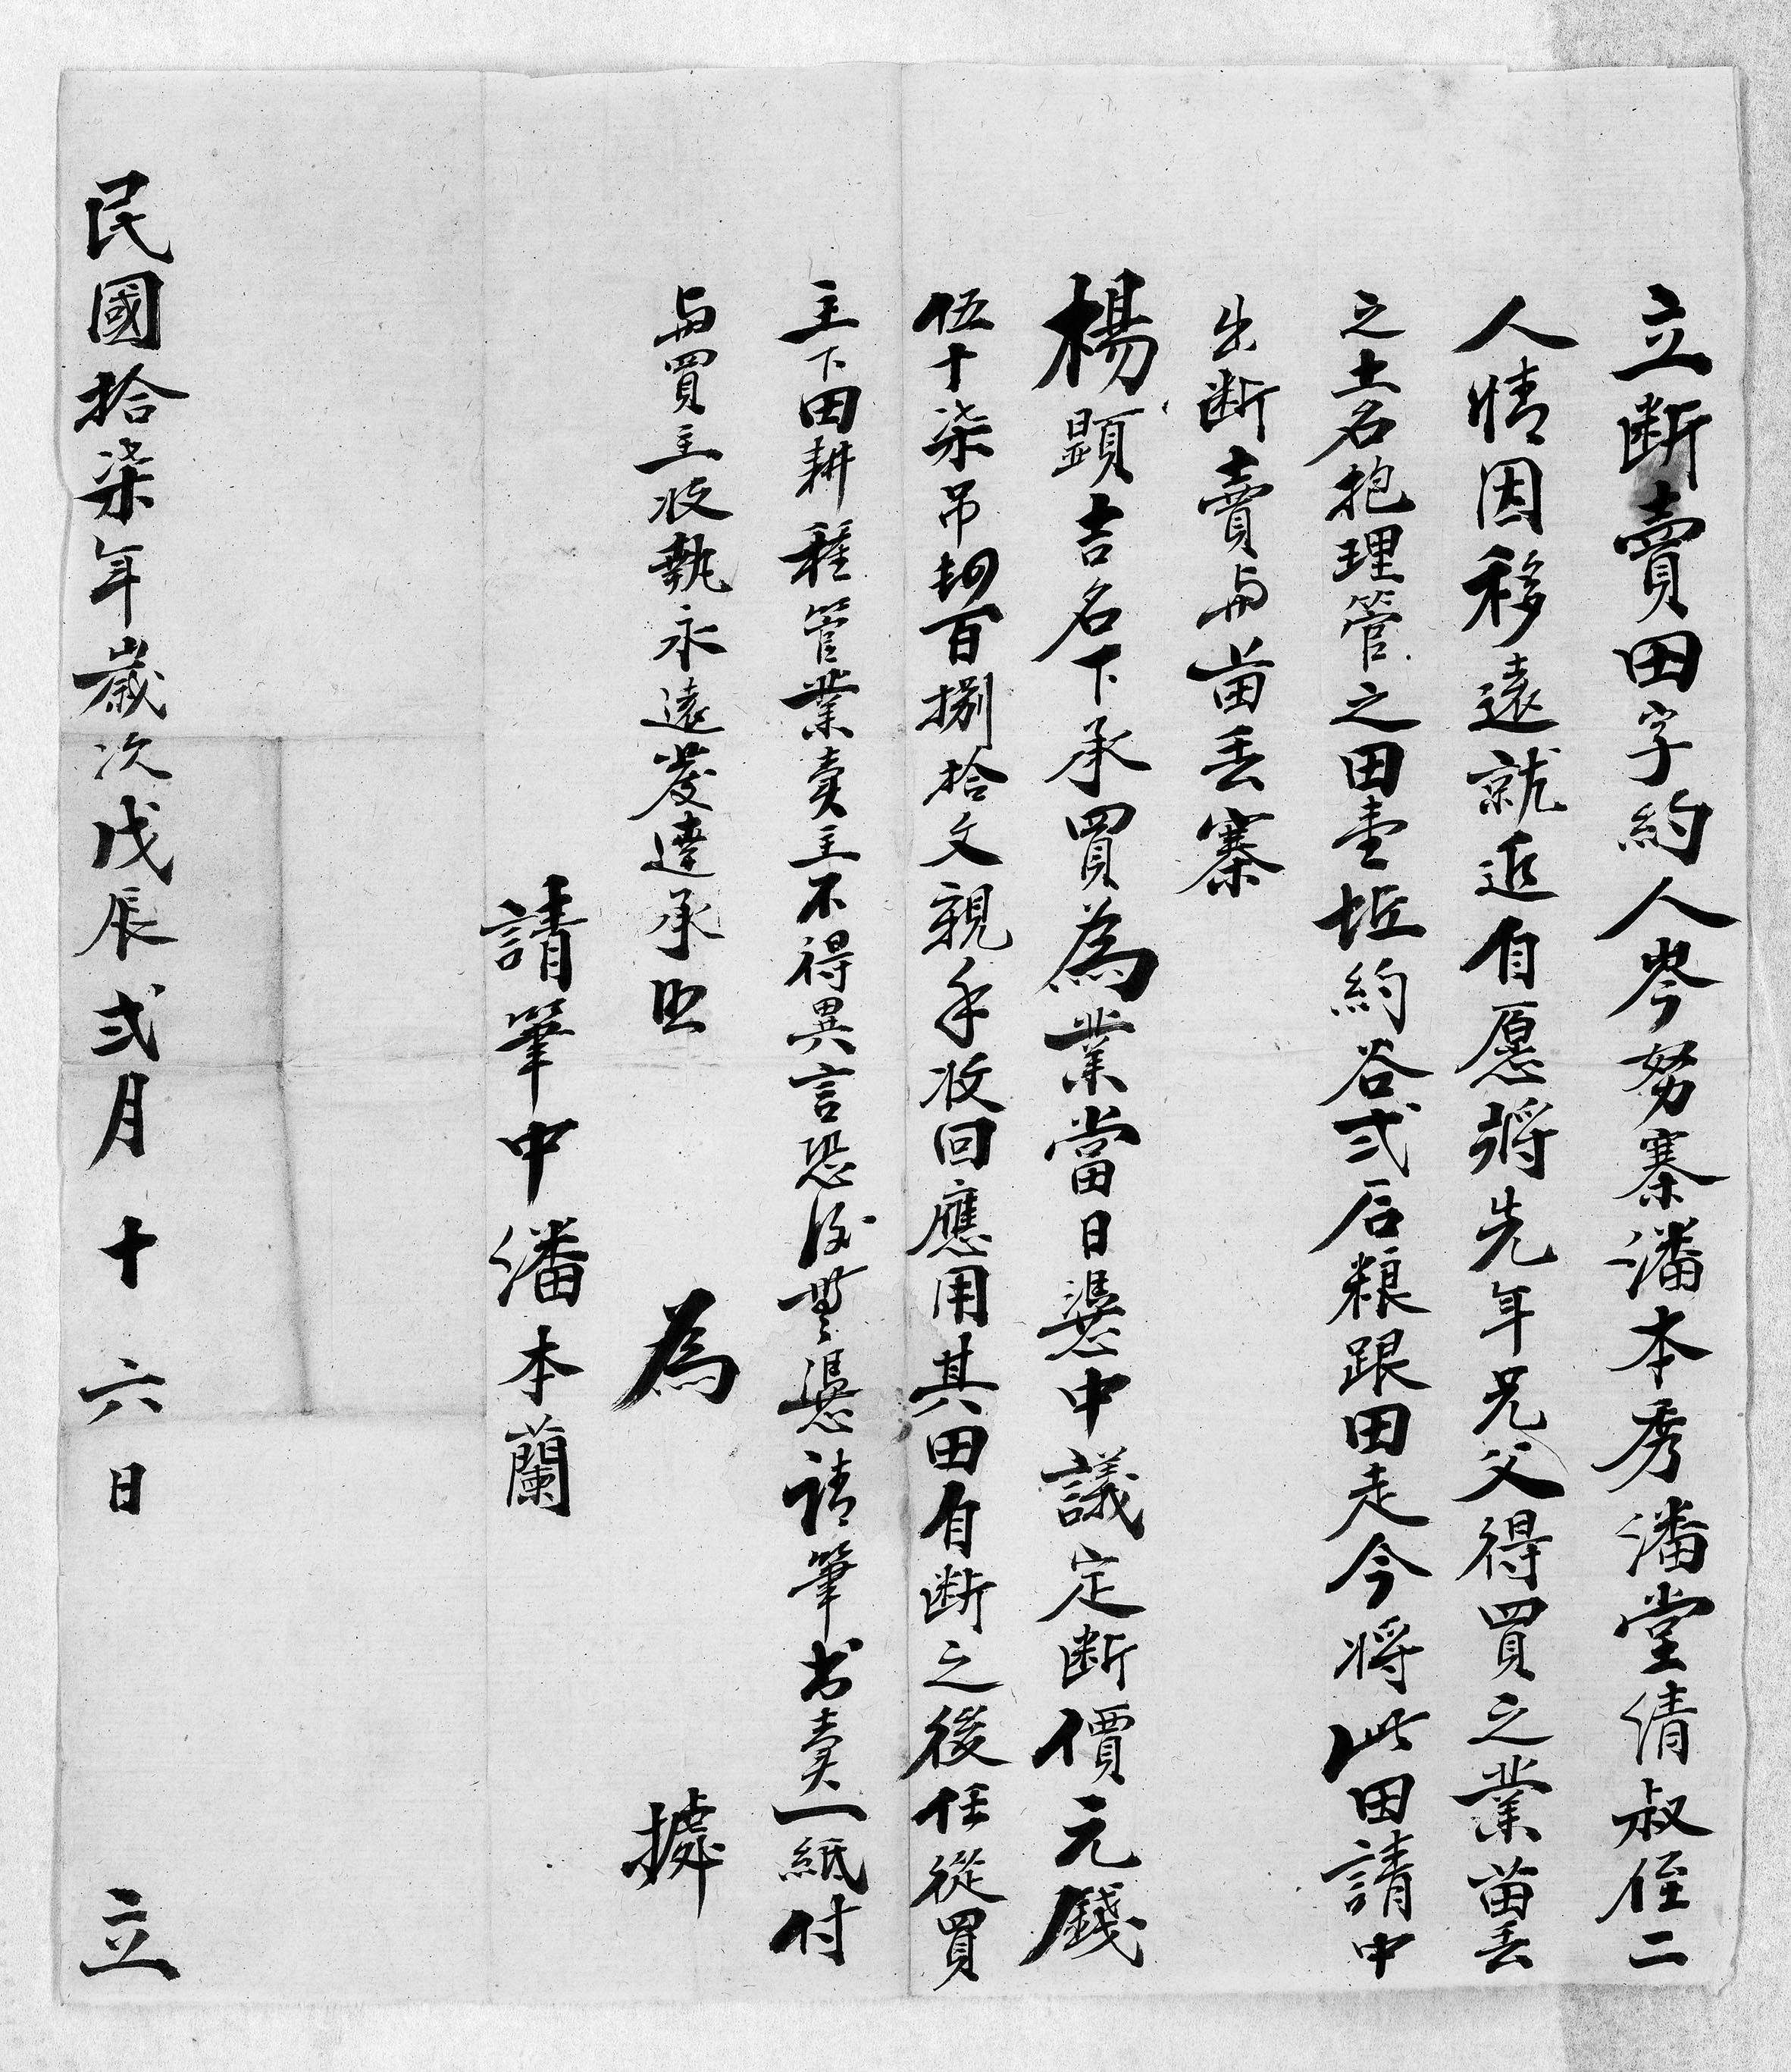 立断賣田字約人岑努寨潘本秀潘堂倩叔侄二
人情因移遠就近自愿將先年兄父得買之業苗丢
之土名抱理管之田壹坵約谷弍石粮跟田走今将此田請中
出断賣与苗丢寨
楊顕吉名下承買為業當日憑中議定断價元錢
伍十柒吊百捌拾文親手收回應用其田自断之後任從買
主下田耕種管業卖主不得異言恐後無憑请筆书卖一紙付
与買主收執永遠發達承照 為 據
請筆中潘本蘭
民國拾柒年歲次戊辰弍月十六日 立